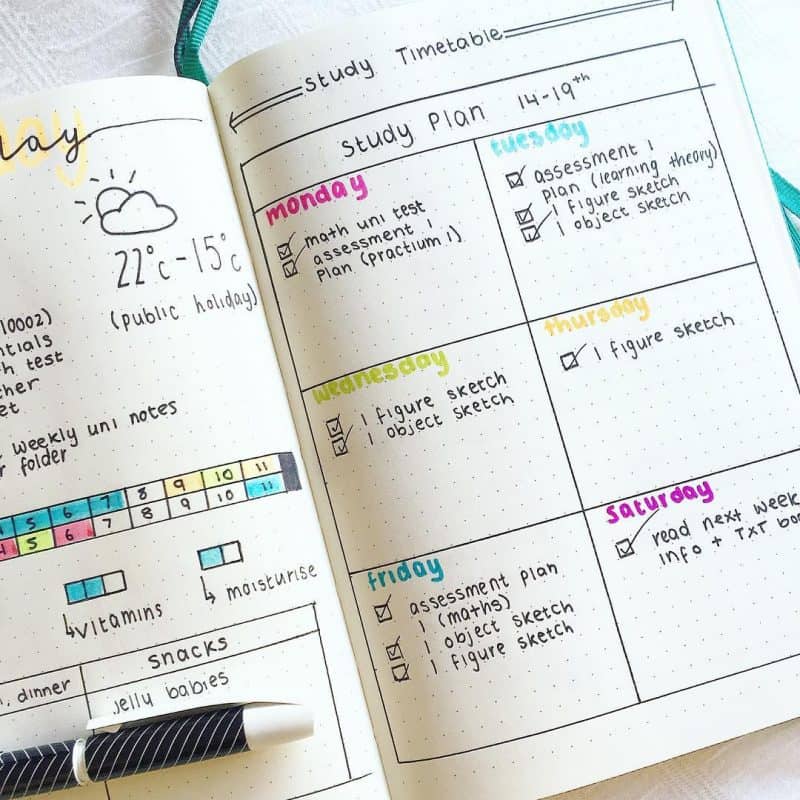 day
22°c - 15°c
(public holiday)
10002)
test
weekly uni notes
folder
5 6 7 8 9 10 11
4 5 6 7 8 9 10 11
vitamins
moisturise
snacks
dinner
jelly babies
Study Timetable
Study Plan 14-19th
monday
math uni test
assessment 1
plan (practium 1)
tuesday
assessment 1
plan (learning theory)
1 figure sketch
1 object sketch
wednesday
1 figure sketch
1 object sketch
thursday
1 figure sketch
friday
assessment plan
1 (maths)
1 object sketch
1 figure sketch
saturday
read next week
info + TxT